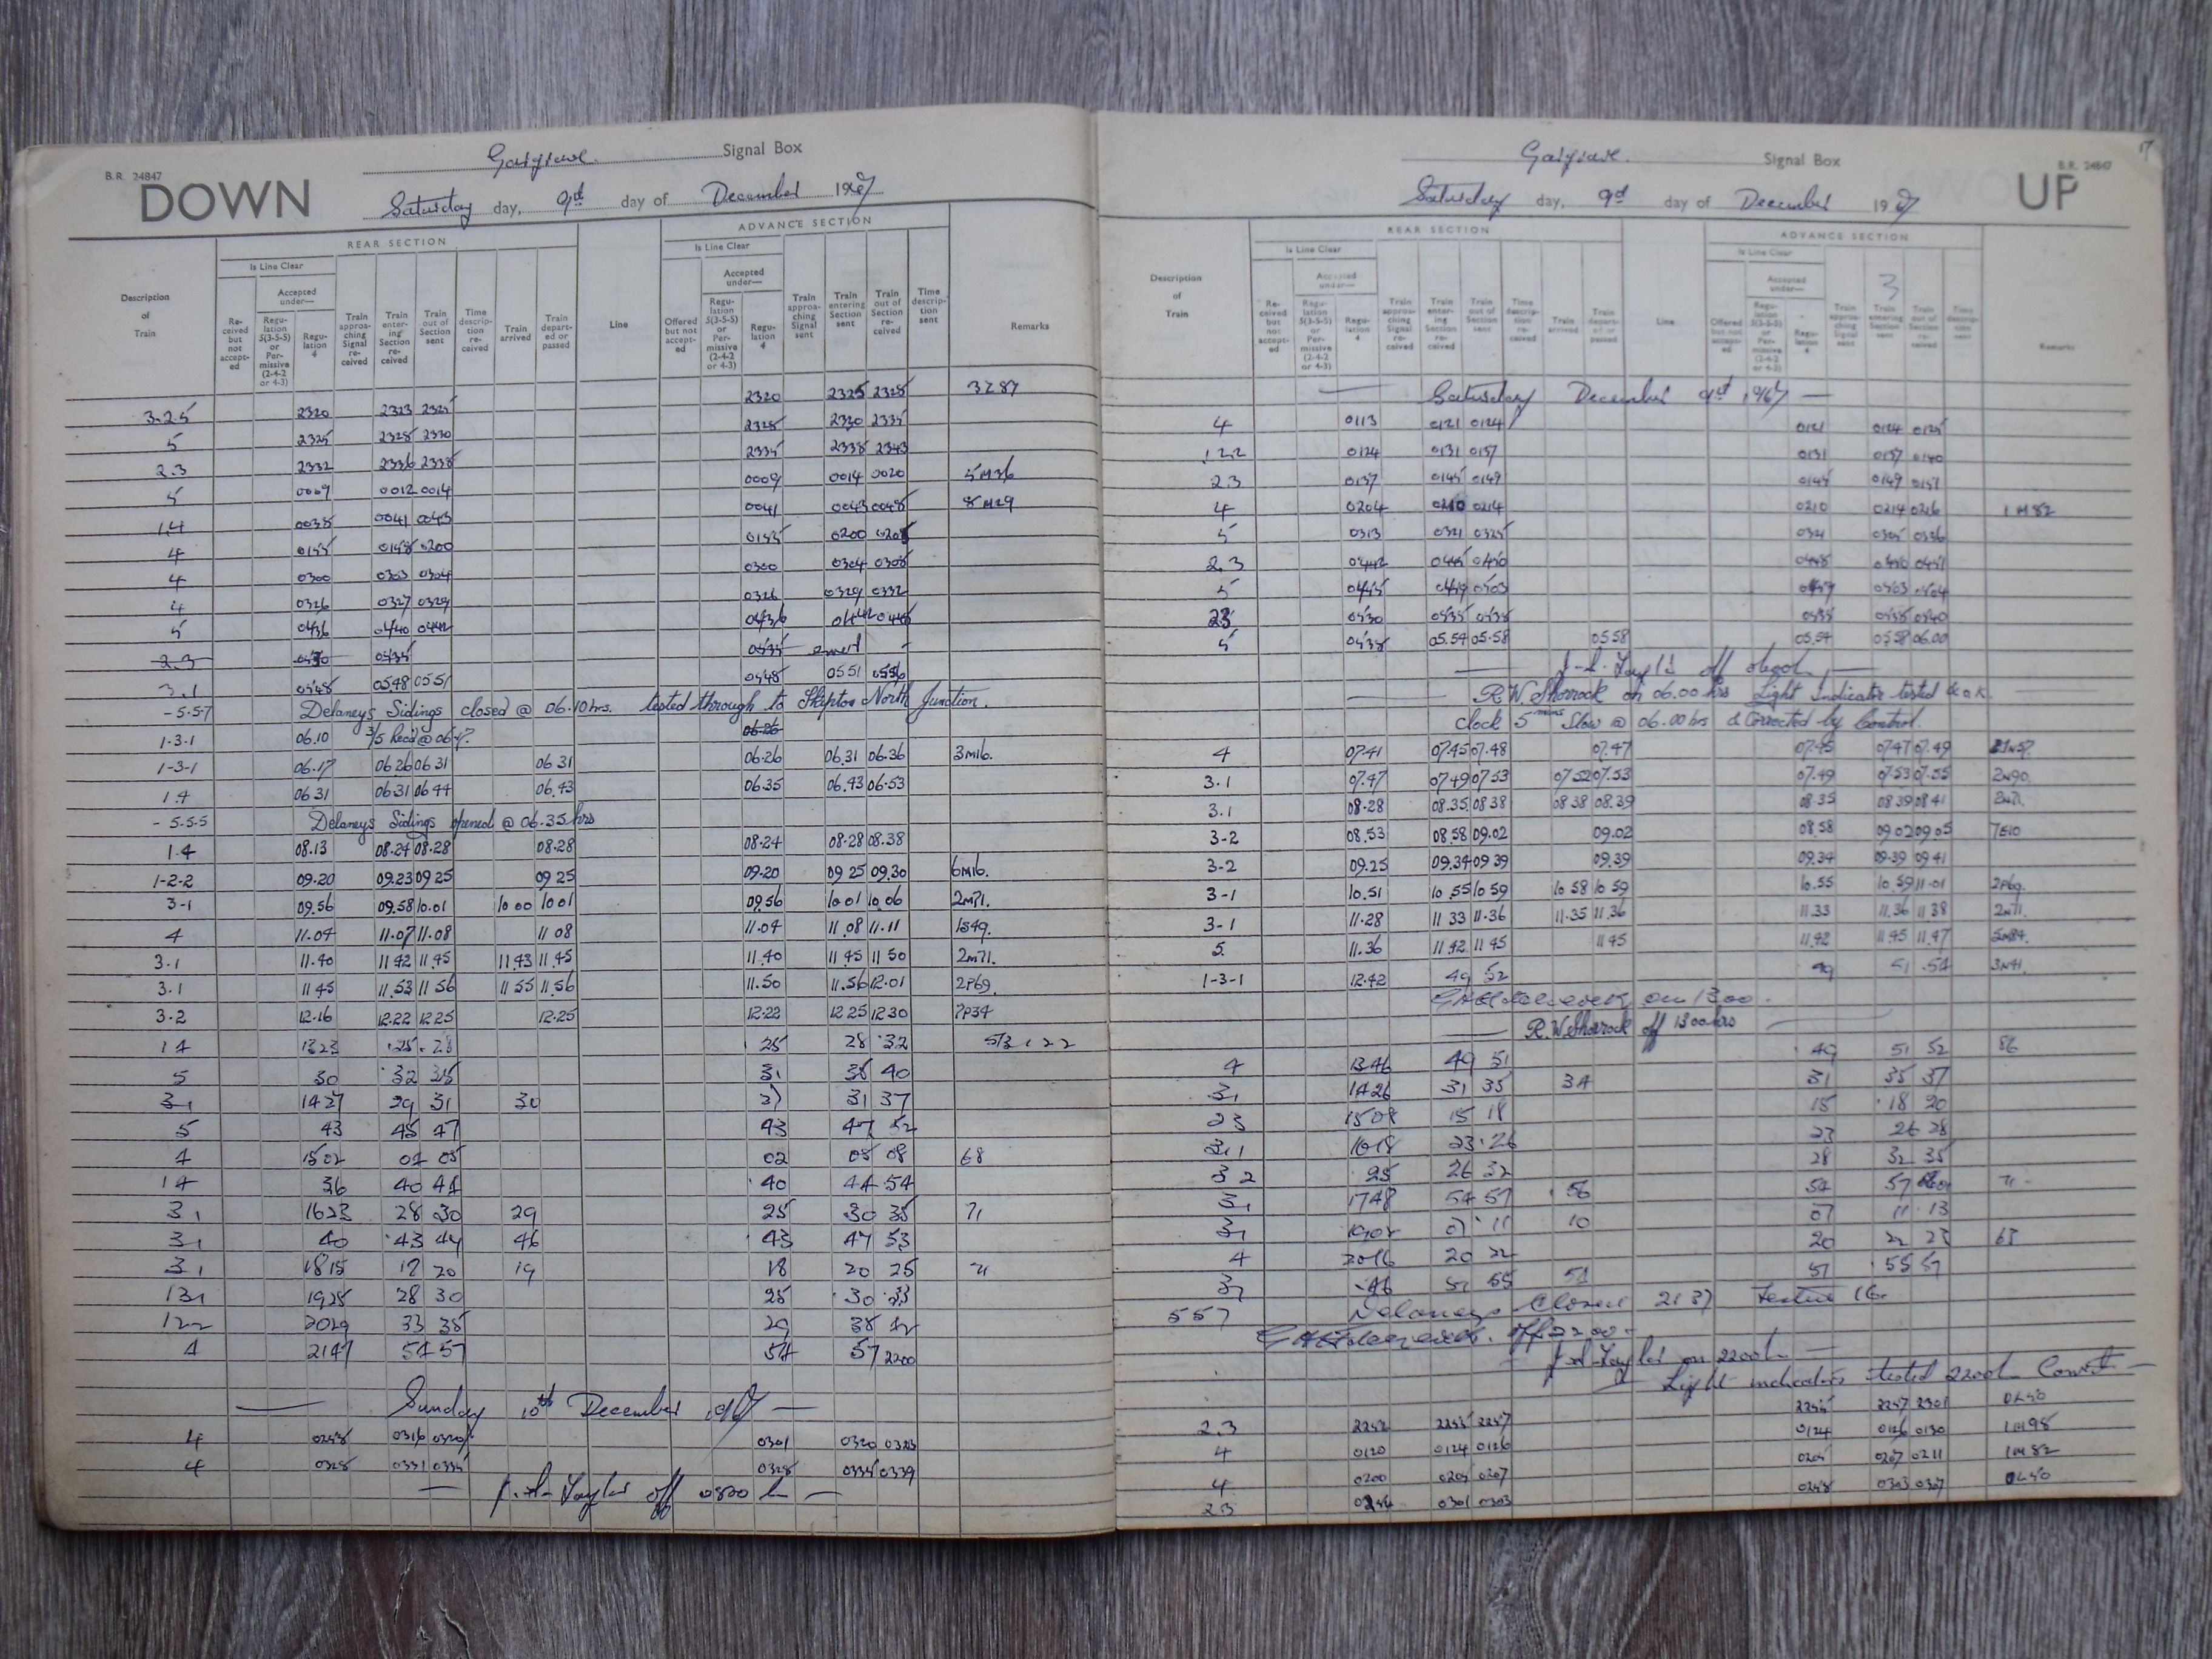 Gargrave. Signal Box
B.R. 24847
DOWN
Saturday day, 9th day of December 1967
REAR SECTION
ADVANCE SECTION
Is Line Clear
Is Line Clear
Description of Train
Received but not accepted
Accepted under—
Regulation 5(3-5-5) or Permissive (2-4-2 or 4-3)
Regulation 4
Train approaching Signal received
Train entering Section received
Train out of Section sent
Time description received
Train arrived
Train departed or passed
Line
Offered but not accepted
Accepted under—
Regulation 5(3-5-5) or Permissive (2-4-2 or 4-3)
Regulation 4
Train approaching Signal sent
Train entering Section sent
Train out of Section received
Time description sent
Remarks
3-2-5 2320 2323 2325 2320 2325 2328 3Z87
5 2325 2328 2330 2328 2330 2335
2.3 2332 2336 2338 2335 2338 2343
5 0009 0012 0014 0009 0014 0020 5M36
1.4 0038 0041 0043 0041 0043 0048 8M29
4 0155 0158 0200 0155 0200 0205
4 0300 0303 0304 0300 0304 0308
4 0326 0327 0329 0326 0329 0332
5 0436 0440 0442 0436 0442 0446
2.3 0530 0535 0535
3.1 0545 0548 0551 0548 0551 0556
-5-5-7 Delaneys Sidings closed @ 06.10 hrs. tested through to Skipton North Junction.
1-3-1 06.10 06.26
1-3-1 06.17 06 26 06 31 06 31 06.26 06.31 06.36 3M16.
1.4 06 31 06 31 06 44 06.43 06.35 06.43 06.53
- 5.5.5 Delaneys Sidings opened @ 06.35 hrs
1.4 08.13 08.24 08.28 08.28 08.24 08.28 08.38
1-2-2 09.20 09.23 09 25 09 25 09.20 09 25 09.30 6M16.
3-1 09.56 09.58 10.01 10 00 10 01 09.56 10 01 10 06 2M71.
4 11.04 11.07 11.08 11 08 11.04 11.08 11.11 1S49.
3.1 11.40 11 42 11 45 11 43 11 45 11.40 11 45 11 50 2M71.
3.1 11 45 11.53 11 56 11 55 11.56 11.50 11.56 12.01 2P69.
3.2 12.16 12.22 12 25 12.25 12.22 12 25 12 30 7P34
14 1323 25 28 25 28 32
5 30 32 35 31 35 40
3.1 1427 29 31 30 27 31 37
5 43 45 47 43 47 52
4 1502 04 05 02 05 08 68
14 36 40 44 40 44 54
3.1 1623 28 30 29 25 30 35 71
3.1 40 43 47 46 43 47 53
3.1 1815 18 20 19 18 20 25 71
131 1925 28 30 25 30 33
122 2029 33 35 29 35 42
4 2147 54 57 54 57 2200
— Sunday 10th December 1967 —
4 0258 0316 0320 0301 0320 0323
4 0328 0331 0335 0328 0335 0339
— off 0800 h —
Gargrave. Signal Box
B.R. 24847
UP
17
Saturday day, 9th day of December 1967
REAR SECTION
ADVANCE SECTION
Is Line Clear
Is Line Clear
3
Description of Train
Received but not accepted
Accepted under—
Regulation 5(3-5-5) or Permissive (2-4-2 or 4-3)
Regulation 4
Train approaching Signal received
Train entering Section received
Train out of Section sent
Time description received
Train arrived
Train departed or passed
Line
Offered but not accepted
Accepted under—
Regulation 5(3-5-5) or Permissive (2-4-2 or 4-3)
Regulation 4
Train approaching Signal sent
Train entering Section sent
Train out of Section received
Time description sent
Remarks
— Saturday December 9th 1967 —
4 0113 0121 0124 0121 0124 0125
1.2.2 0124 0131 0137 0131 0137 0140
2.3 0137 0145 0149 0145 0149 0151
4 0204 0210 0214 0210 0214 0216 1M82
5 0313 0321 0325 0321 0325 0336
2.3 0442 0445 0450 0448 0450 0451
5 0455 0459 0503 0459 0503 0504
23 0530 0535 0538 0535 0538 0540
5 0538 05.54 05.58 05 58 05.54 05 58 06.00
— off 0600h —
— R.W. Shorrock on 06.00 hrs Light Indicator tested & O.K.
Clock 5 mins Slow @ 06.00 hrs & Corrected by Control.
4 07.41 07.45 07.48 07.47 07.45 07.47 07.49
3.1 07.47 07 49 07 53 07 52 07.53 07.49 07.53 07.55 2N90.
3.1 08.28 08.35 08 38 08 38 08.39 08.35 08 39 08 41 2N71.
3-2 08.53 08 58 09.02 09.02 08.58 09 02 09 05 7E10
3-2 09.25 09.34 09 39 09.39 09.34 09.39 09 41
3-1 10.51 10 55 10 59 10 58 10 59 10.55 10 59 11.01 2P69.
3-1 11.28 11 33 11.36 11.35 11.36 11.33 11.36 11 38 2N71.
5. 11.36 11 42 11 45 11 45 11.42 11 45 11.47 5M84.
1-3-1 12.42 49 52 49 51 54 3N41.
on 1300.
— R.W. Shorrock off 13 00 hrs —
4 1346 49 51 49 51 52 86
3.1 1426 31 35 34 31 35 37
23 1508 15 18 15 18 20
3.1 1618 23 26 23 26 28
3 2 25 26 32 28 32 35
3.1 1748 54 57 56 54 57
3.1 1902 07 11 10 07 11 13
4 2016 20 22 20 22 23 63
3.1 46 51 55 54 51 55 57
557 Delaneys Closed 2137
off 2200
on 2200h —
Light indicators tested 2200h Correct —
2.3 2252 2255 2257 2255 2257 2301 0L50
4 0120 0124 0126 0124 0126 0130 1M98
4 0200 0205 0207 0205 0207 0211 1M82
2.3 0254 0301 0303 0258 0303 0307 0L50